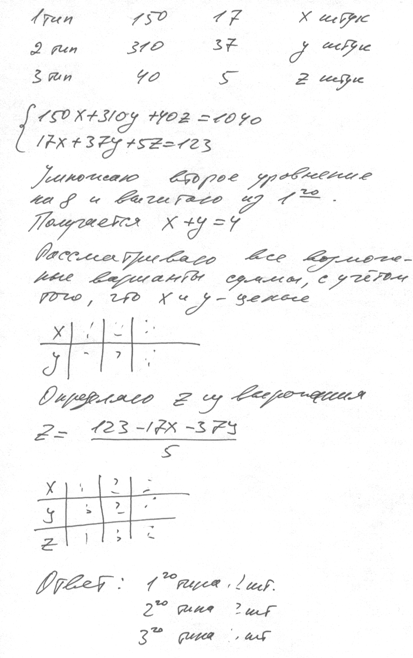 1 тип 150 17 x штук
2 тип 310 37 y штук
3 тип 40 5 z штук
150x+310y+40z=1040
17x+37y+5z=123
Умножаю второе уровнение
на 8 и вычитаю из 1го.
Получается x+y=4
Рассматриваю все возмож-
ные варианты суммы, с учётом
того, что x и y - целые
x
y
Определяю z из выражения
z = 123-17x-37y
5
x
y
z
Ответ: 1го типа ? шт.
2го типа ? шт
3го типа шт